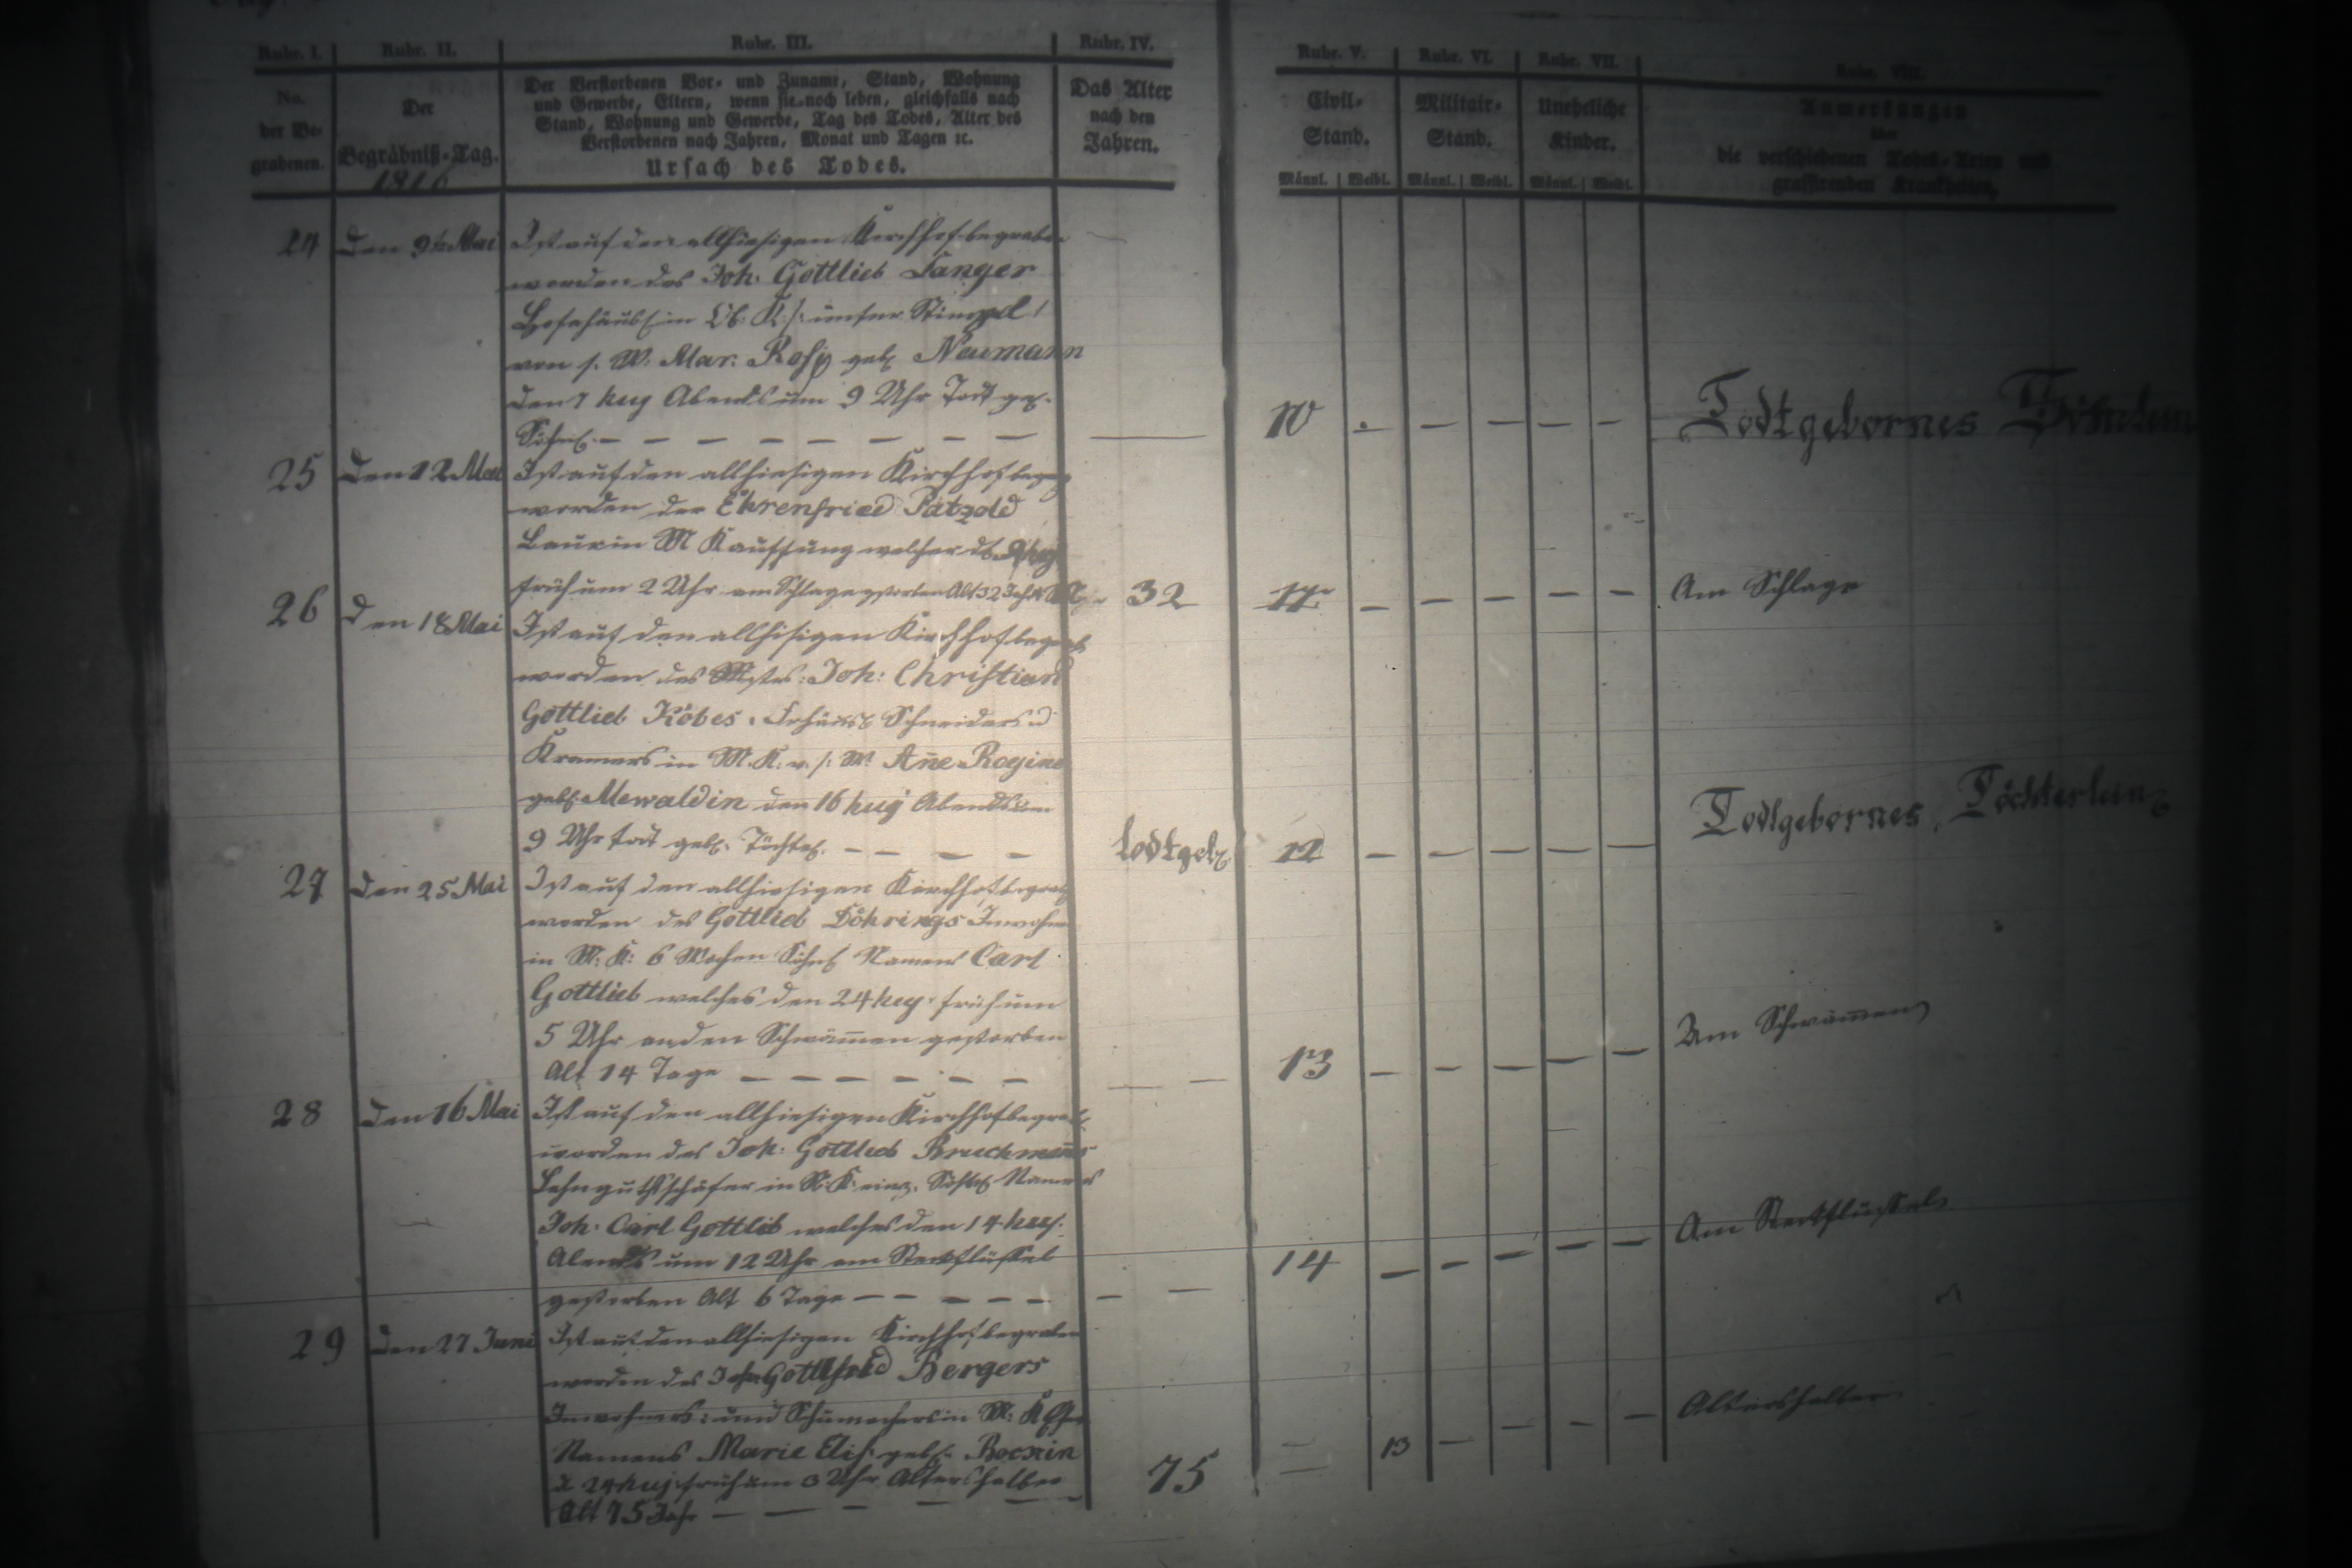 Rubr. I. Rubr. II. Rubr. III. Rubr. IV. Rubr. V. Rubr. VI. Rubr. VII. Rubr. VIII.
No. der Be-grabenen.
Der Begräbniß-Tag.
1816
Der Verstorbenen Vor- und Zuname, Stand, Wohnung
und Gewerbe, Eltern, wenn sie noch leben, gleichfalls nach
Stand, Wohnung und Gewerbe, Tag des Todes, Alter des
Verstorbenen nach Jahren, Monat und Tagen ꝛc.
Ursach des Todes.
Das Alter
nach den
Jahren.
Civil-
Stand.
Männl. Weibl.
Militair-
Stand.
Männl. Weibl.
Uneheliche
Kinder.
Männl. Weibl.
Anmerkungen
über
die verschiedenen Todes-Arten und
grassirenden Krankheiten.
24 Den 9t. Mai Ist auf den allhiesigen Kirchhof begraben
worden des Joh. Gottlieb
Hofehäusl. in Ob. K.
von s. W. Mar. Rosj geb. Neumann
den 7 huj Abends um 9 Uhr Todt geb.
Söhnl. — — — — 10 Todtgebornes Söhnlein
25 Den 12 Mai Ist auf den allhiesigen Kirchhof begrab
worden der Ehrenfried Pätzold
Bauer in M Kauffung welcher
früh um 2 Uhr am Schlage gestorben Alt 32 Jahr 32 11 Am Schlage
26 Den 18 Mai Ist auf den allhisigen Kirchhof begrab
worden des Mstrs: Joh: Christian
Gottlieb Köbes Schneiders u
Kramers in M. K. v. s. W. Ane Rogine
geb. Mewaldin den 16 huj Abends um
9 Uhr tod geb. Töchterl. — — — todtgeb. 12 Todtgebornes Töchterlein
27 Den 25 Mai Ist auf den allhiesigen Kirchhof begrab
worden des Gottlieb Döhrings Inwohn
in M. K: 6 Wochen Söhnl Namens Carl
Gottlieb welches den 24 huj. früh um
5 Uhr an den Schwämen gestorben
Alt 14 Tage — — — — 13 Am Schwämen
28 Den 16 Mai Ist auf den allhiesigen Kirchhof begrab
worden des Joh: Gottlieb Bruchmans
Lehnguthsschäfer in N. K. einz. Söhnl Namens
Joh. Carl Gottlib welches den 14 huj.
Abends um 12 Uhr am Steckflüssel
gestorben Alt 6 Tage — — — — 14 Am Steckflüssel
29 Den 27 Juni Ist auf den allhiesigen Kirchhof begraben
worden des Joh Gottfried Bergers
Inwohners: und Schumachers in M: K
Namens Marie Elis. geb.
d 24 huj. früh um 3 Uhr Altershalber
Alt 75 Jahr — — — 75 13 Altershalber